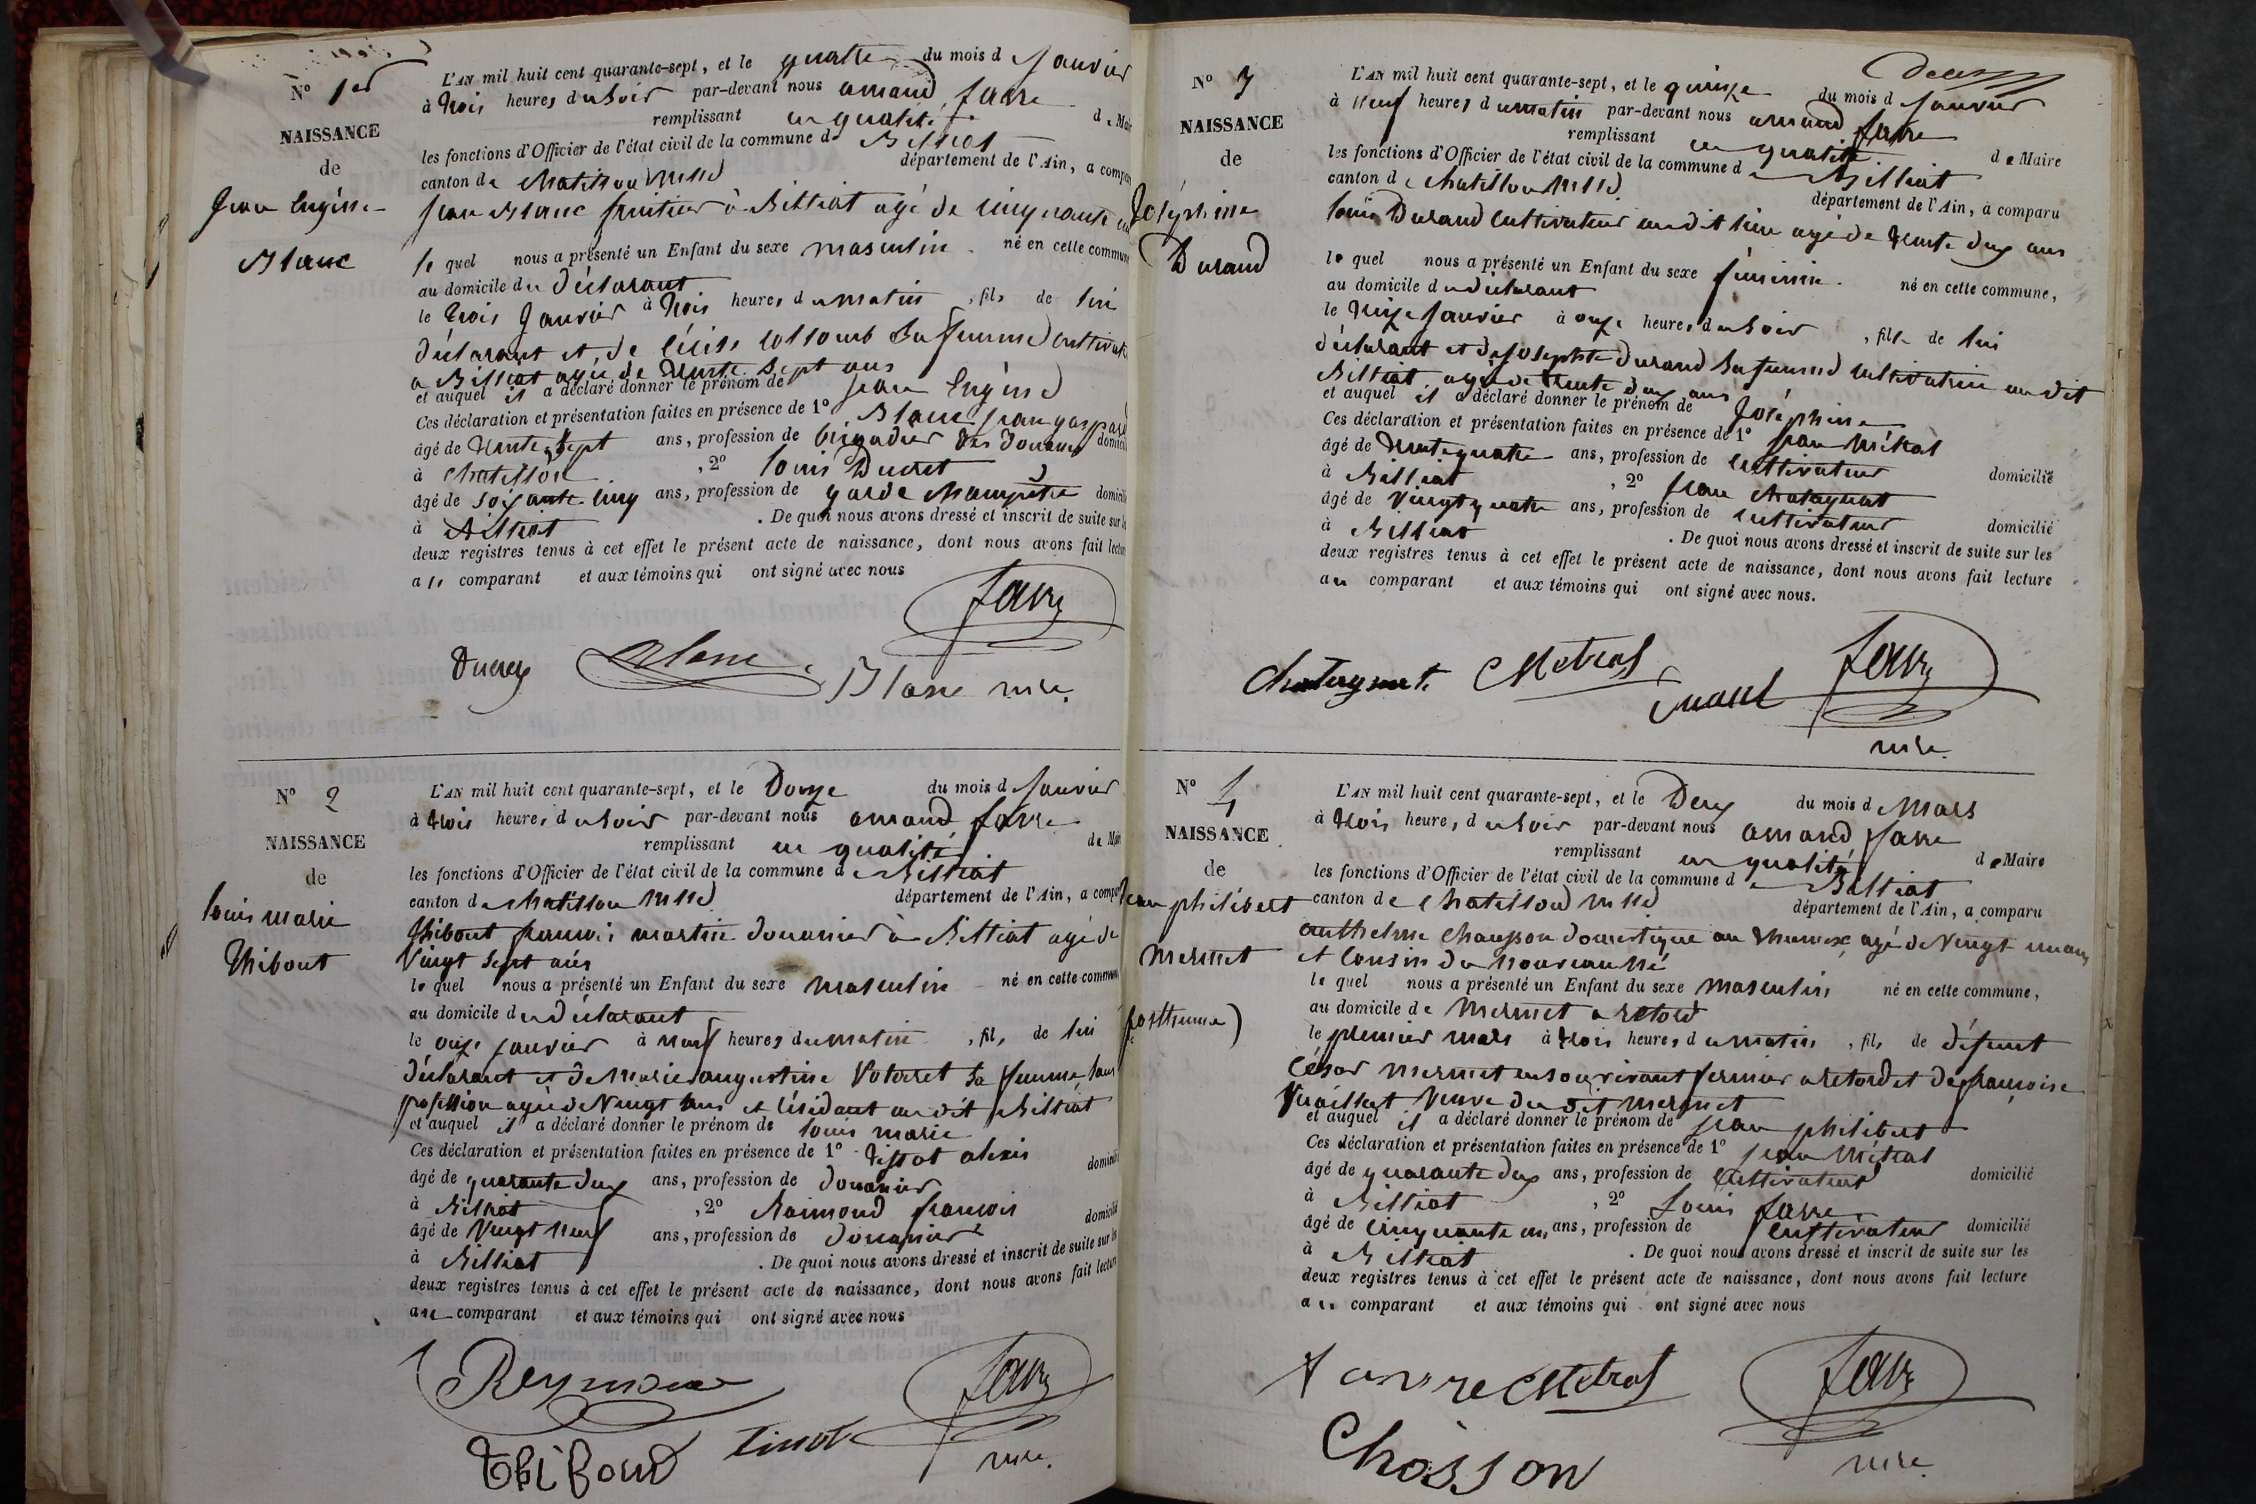 N° 1er
NAISSANCE
de
Jean Eugène
Blanc
L'AN mil huit cent quarante-sept, et le quatre du mois d Janvier
à trois heures du soir par-devant nous amand favre
remplissant en qualité de Maire
les fonctions d'Officier de l'état civil de la commune de Billiat
canton de Chatillon département de l'Ain, a comparu
jean Blanc fruitier à Billiat agé de cinquante
le quel nous a présenté un Enfant du sexe masculin né en cette commune
au domicile du déclarant
le trois Janvier à trois heures du matin, fils de lui
déclarant et de sa femme
a Billiat agée de trente sept ans
et auquel il a déclaré donner le prénom de jean Eugène
Ces déclaration et présentation faites en présence de 1° Blanc jean gaspard
âgé de trente sept ans, profession de brigadier des Douanes domicilié
à Chatillon, 2° louis Ducret
âgé de soixante cinq ans, profession de garde champêtre domicilié
à Billiat. De quoi nous avons dressé et inscrit de suite sur les
deux registres tenus à cet effet le présent acte de naissance, dont nous avons fait lecture
au comparant et aux témoins qui ont signé avec nous
favre
Ducret Blanc Blanc
N° 2
NAISSANCE
de
louis marie
Thibout
L'AN mil huit cent quarante-sept, et le Douze du mois d Janvier
à trois heures du soir par-devant nous amand favre
remplissant en qualité de Maire
les fonctions d'Officier de l'état civil de la commune de Billiat
canton de chatillon département de l'Ain, a comparu
Thibout françois martin douanier à Billiat agé de
Vingt sept ans
le quel nous a présenté un Enfant du sexe masculin né en cette commune
au domicile du déclarant
le onze janvier à neuf heures du matin, fils de lui
déclarant et de Marie augustine sa femme sans
profession agée de Vingt ans et résidant au dit Billiat
et auquel il a déclaré donner le prénom de louis marie
Ces déclaration et présentation faites en présence de 1° alexis
âgé de quarante deux ans, profession de douanier domicilié
à Billiat, 2° Raimond françois
âgé de Vingt neuf ans, profession de douanier domicilié
à Billiat. De quoi nous avons dressé et inscrit de suite sur les
deux registres tenus à cet effet le présent acte de naissance, dont nous avons fait lecture
au comparant et aux témoins qui ont signé avec nous
favre
N° 3
NAISSANCE
de
Joséphine
Durand
L'AN mil huit cent quarante-sept, et le quinze du mois d Janvier
à neuf heures du matin par-devant nous amand favre
remplissant en qualité de Maire
les fonctions d'Officier de l'état civil de la commune de Billiat
canton de chatillon département de l'Ain, a comparu
louis Durand cultivateur au dit lieu agé de trente deux ans
le quel nous a présenté un Enfant du sexe féminin né en cette commune,
au domicile du déclarant
le treize janvier à onze heures du soir, fille de lui
déclarant et de Josephte durand sa femme cultivatrice au dit
Billiat agée de trente deux ans
et auquel il a déclaré donner le prénom de Joséphine
Ces déclaration et présentation faites en présence de 1° jean Métral
âgé de trente quatre ans, profession de cultivateur domicilié
à Billiat, 2° jean chatagnat
âgé de Vingt quatre ans, profession de cultivateur domicilié
à Billiat. De quoi nous avons dressé et inscrit de suite sur les
deux registres tenus à cet effet le présent acte de naissance, dont nous avons fait lecture
au comparant et aux témoins qui ont signé avec nous.
Métral favre
N° 4
NAISSANCE
de
jean philibert
mermet
(posthume)
L'AN mil huit cent quarante-sept, et le Deux du mois d Mars
à trois heures du soir par-devant nous amand favre
remplissant en qualité de Maire
les fonctions d'Officier de l'état civil de la commune de Billiat
canton de chatillon département de l'Ain, a comparu
anthelme domestique au agé de Vingt un ans
et cousin du nouveau né
le quel nous a présenté un Enfant du sexe masculin né en cette commune,
au domicile de Mermet a retord
le premier mars à trois heures du matin, fils de défunt
César mermet en son vivant fermier a retord et de françoise
veuve du dit mermet
et auquel il a déclaré donner le prénom de jean philibert
Ces déclaration et présentation faites en présence de 1° jean Métral
âgé de quarante deux ans, profession de cultivateur domicilié
à Billiat, 2° louis favre
âgé de cinquante un ans, profession de cultivateur domicilié
à Billiat. De quoi nous avons dressé et inscrit de suite sur les
deux registres tenus à cet effet le présent acte de naissance, dont nous avons fait lecture
au comparant et aux témoins qui ont signé avec nous
favre Métral favre
Chosson